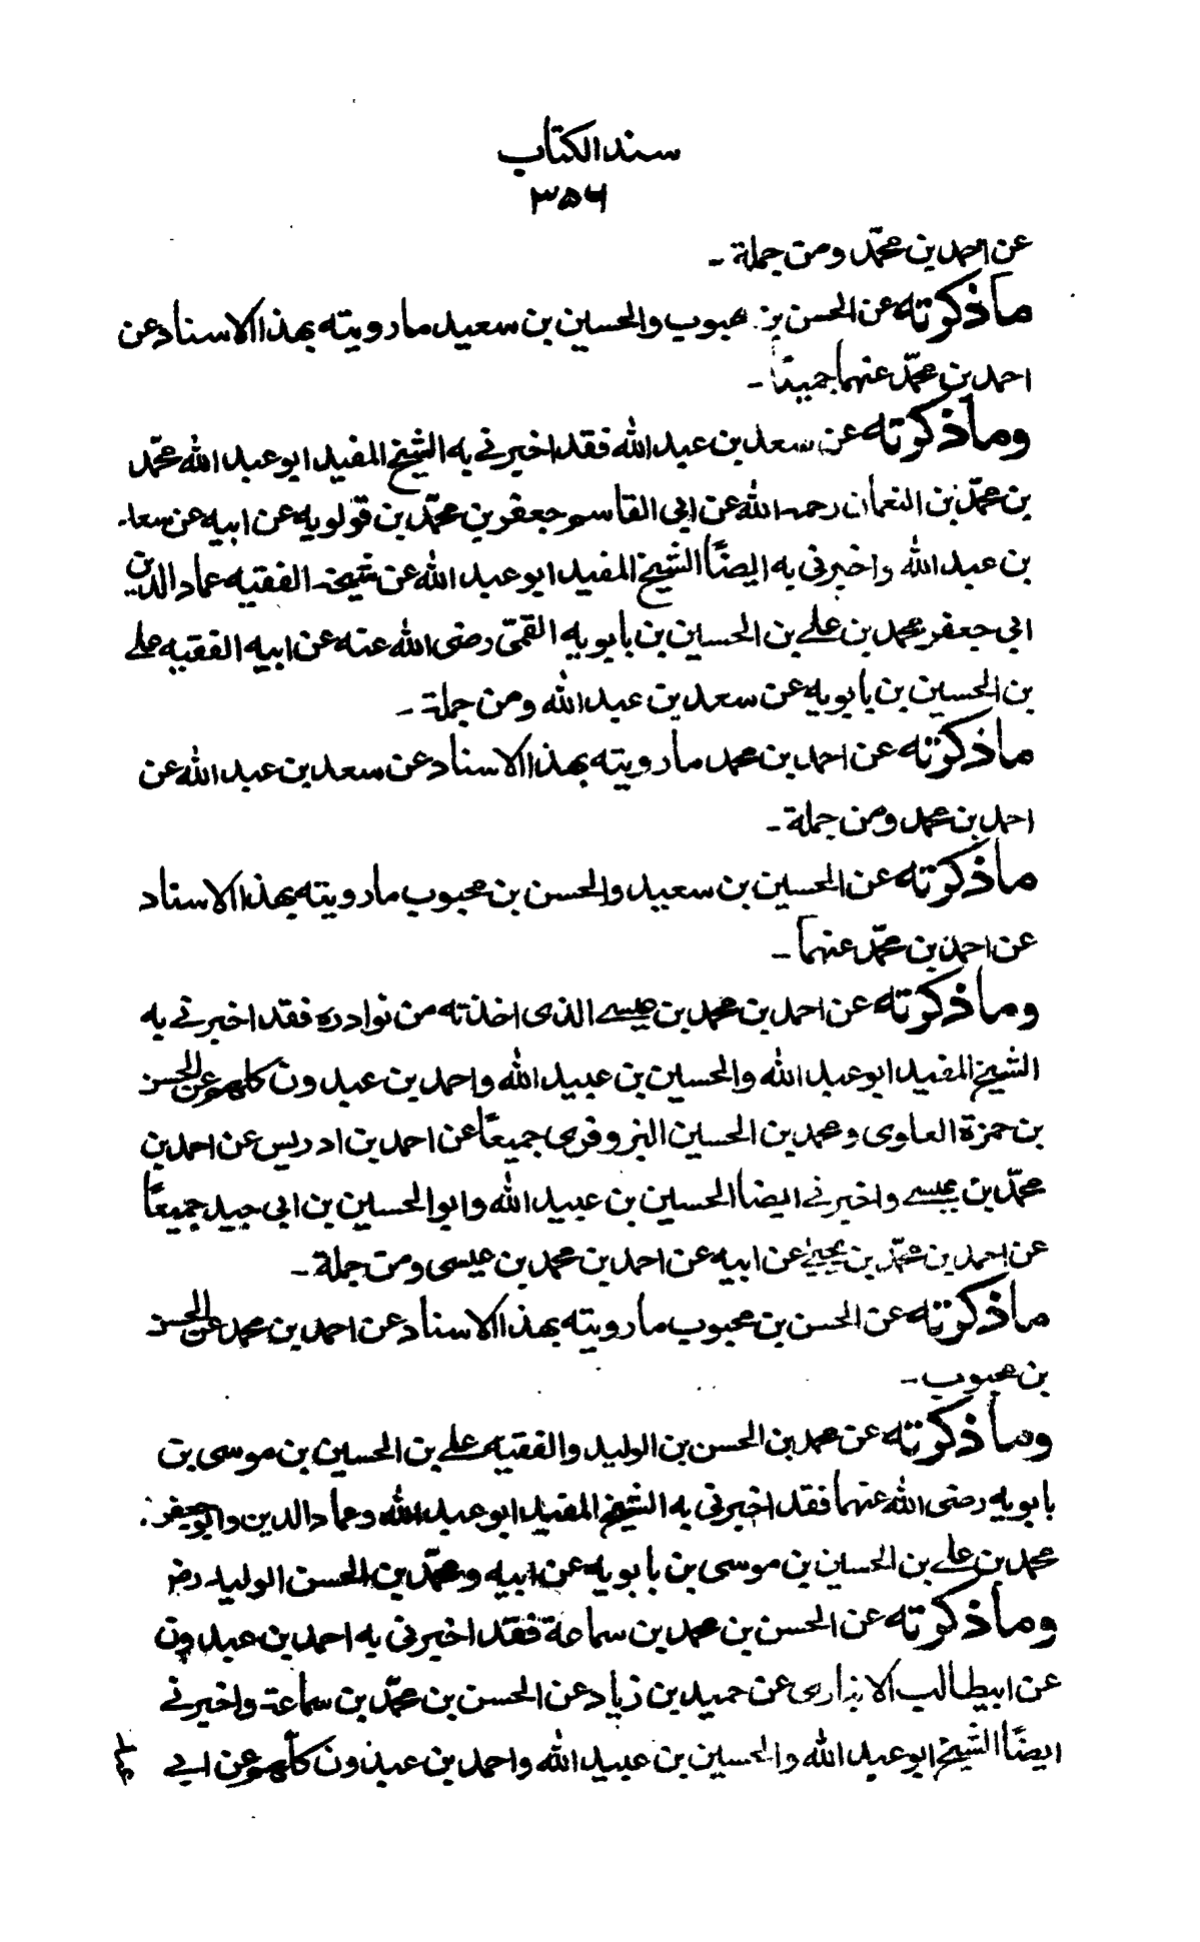 سند الكتاب
۳۵۶
عن احمد بن محمّد ومن جملة -
ما ذكرته عن الحسن بن محبوب والحسين بن سعيد ما رويته بهذا الاسناد عن
احمد بن محمّد عنهما جميعًا -
وما ذكرته عن سعد بن عبد الله فقد اخبرنے به الشيخ المفيد ابو عبد الله محمّد
بن محمّد بن النعمان رحمه الله عن ابى القاسم جعفر بن محمّد بن قولويه عن ابيه عن سعد
بن عبد الله واخبرنى به ايضًا الشيخ المفيد ابو عبد الله عن شيخه الفقيه عماد الدين
ابى جعفر محمد بن علے بن الحسين بن بابويه القمّى رضى الله عنه عن ابيه الفقيه علے
بن الحسين بن بابويه عن سعد بن عبد الله ومن جملة -
ما ذكرته عن احمد بن محمد ما رويته بهذا الاسناد عن سعد بن عبد الله عن
احمد بن محمد ومن جملة -
ما ذكرته عن الحسين بن سعيد والحسن بن محبوب ما رويته بهذا الاسناد
عن احمد بن محمّد عنهما -
وما ذكرته عن احمد بن محمد بن عيسے الذى اخذته من نوادره فقد اخبرنے به
الشيخ المفيد ابو عبد الله والحسين بن عبيد الله واحمد بن عبدون كلهم عن الحسن
بن حمزة العلوى ومحمد بن الحسين البزوفرى جميعًا عن احمد بن ادريس عن احمد بن
محمّد بن عيسے واخبرنے ايضا الحسين بن عبيد الله وابو الحسين بن ابى جيد جميعًا
عن احمد بن محمّد بن يحيىٰ عن ابيه عن احمد بن محمد بن عيسى ومن جملة -
ما ذكرته عن الحسن بن محبوب ما رويته بهذا الاسناد عن احمد بن محمد عن الحسن
بن محبوب -
وما ذكرته عن محمد بن الحسن بن الوليد والفقيه علے بن الحسين بن موسى بن
بابويه رضى الله عنهما فقد اخبرنى به الشيخ المفيد ابو عبد الله وعماد الدين وابو جعفر
محمد بن علے بن الحسين بن موسى بن بابويه عن ابيه ومحمّد بن الحسن الوليد رض
وما ذكرته عن الحسن بن محمد بن سماعة فقد اخبرنى به احمد بن عبدون
عن ابيطالب الانبارى عن حميد بن زياد عن الحسن بن محمّد بن سماعة واخبرنے
ايضًا الشيخ ابو عبد الله والحسين بن عبيد الله واحمد بن عبدون كلّهم عن ابے